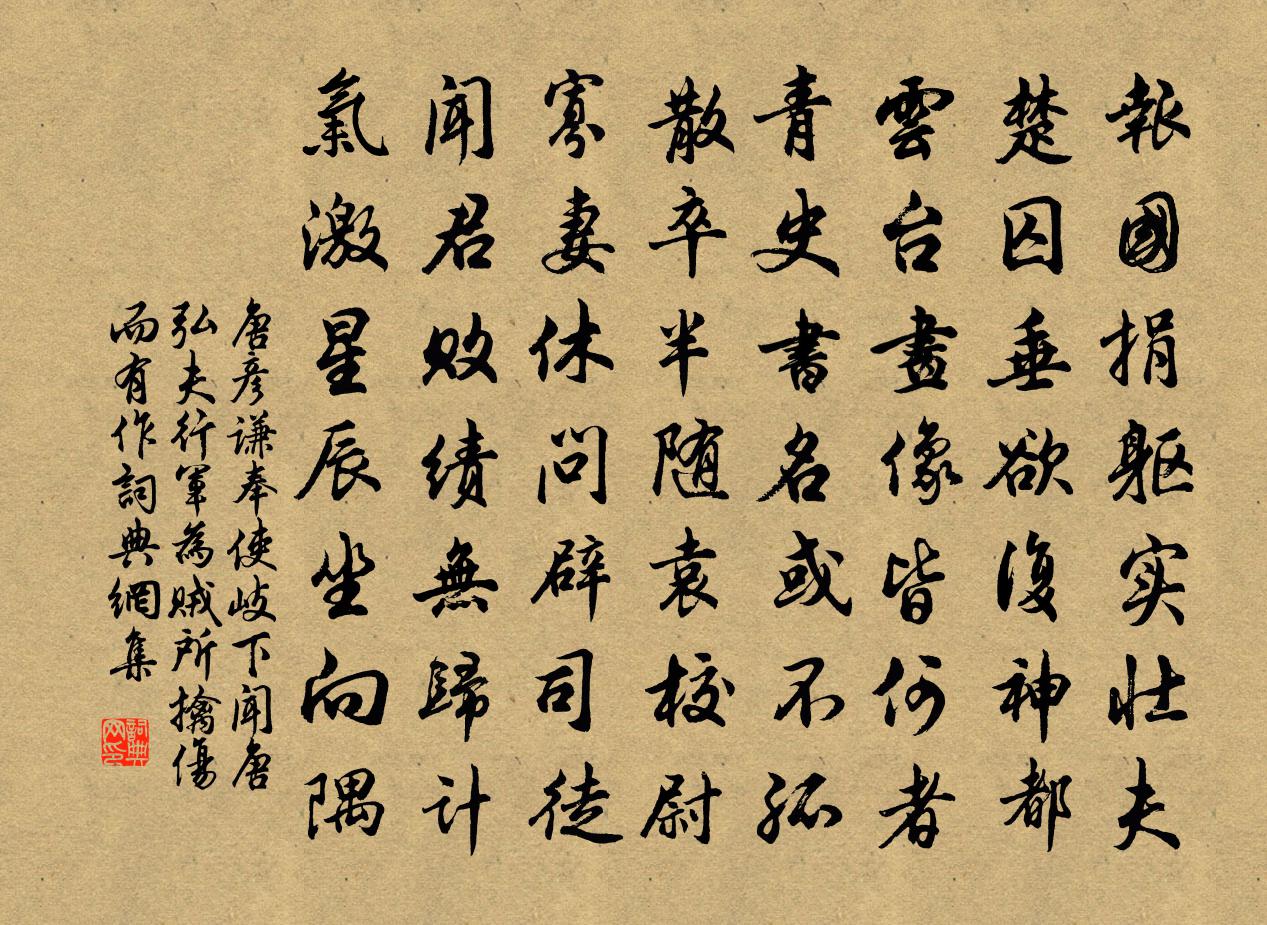 報國捐躯实壮夫
楚囚垂欲復神都
雲台畫像皆何者
青史書名或不孤
散卒半随袁校尉
寡妻休問辟司徒
闻君败績無歸计
氣激星辰坐向隅
唐彦谦奉使岐下闻唐
弘夫行军為贼所擒傷
而有作詞典網集
詞典网印